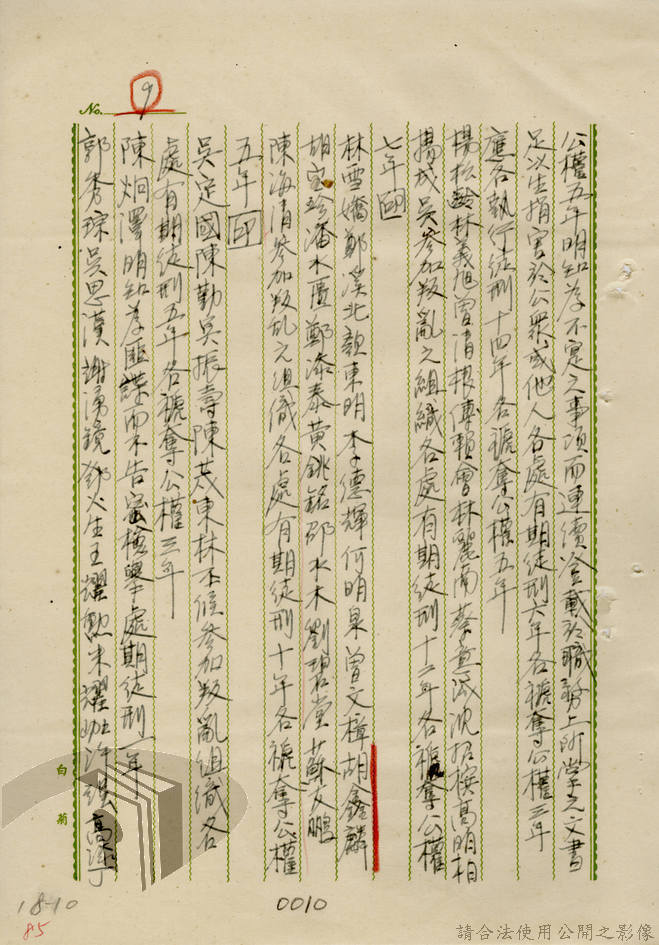 No. 9
公權五年明知為不實之事項而連續登載於職務上所掌之文書
足以生損害於公眾或他人各處有期徒刑六年各褫奪公權三年
應各執行徒刑十四年各褫奪公權五年
楊松齡林義旭曾清根傅賴會林麗南蔡 沈招撰高明柏
楊成吳參加叛亂之組織各處有期徒刑十二年各褫奪公權
七年
林雪嬌鄭漢北顏東明李德輝何明泉曾文樟胡鑫麟
胡寶珍潘水 鄭添泰黃銚銘邵水木劉碧堂蘇友鵬
陳海清參加叛乱之組織各處有期徒刑十年各褫奪公權
五年
吳定國陳勤吳振壽陳茂東林 參加叛亂組織各
處有期徒刑五年各褫奪公權三年
陳炯澤明知為匪諜而不告密檢舉處期徒刑一年
郭秀琮吳思漢謝湧鏡鄧火生王耀勳朱耀 許強高添丁
白菊
18-10
85
0010
請合法使用公開之影像